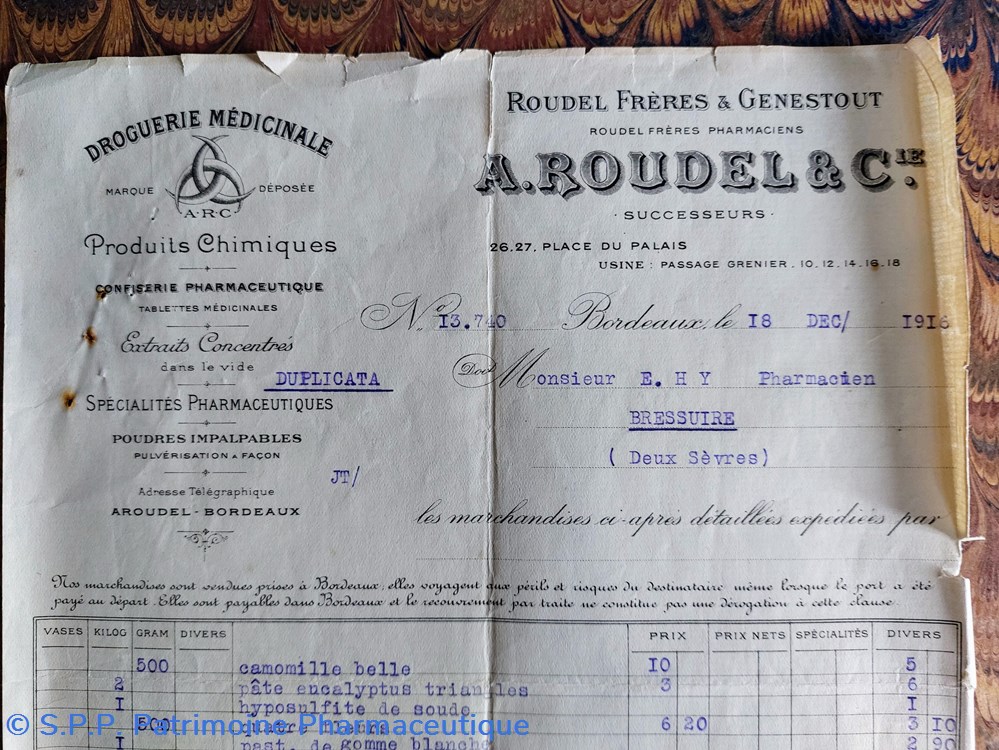 DROGUERIE MÉDICINALE
MARQUE DÉPOSÉE
A·R·C·
Produits Chimiques
CONFISERIE PHARMACEUTIQUE
TABLETTES MÉDICINALES
Extraits Concentrés
dans le vide
DUPLICATA
SPÉCIALITÉS PHARMACEUTIQUES
POUDRES IMPALPABLES
PULVÉRISATION A FAÇON
JT/
Adresse Télégraphique
AROUDEL-BORDEAUX
ROUDEL FRÈRES & GENESTOUT
ROUDEL FRÈRES PHARMACIENS
A. ROUDEL & CIE.
· SUCCESSEURS ·
26.27, PLACE DU PALAIS
USINE : PASSAGE GRENIER . 10.12.14.16.18
No. I3.740 Bordeaux, le I8 DEC/ I9I6
Doit Monsieur E. H Y Pharmacien
BRESSUIRE
( Deux Sèvres)
les marchandises ci-après détaillées expédiées par
Nos marchandises sont vendues prises à Bordeaux, elles voyagent aux périls et risques du destinataire même lorsque le port a été
payé au départ. Elles sont payables dans Bordeaux et le recouvrement par traite ne constitue pas une dérogation à cette clause.
VASES KILOG GRAM DIVERS PRIX PRIX NETS SPÉCIALITÉS DIVERS
500 camomille belle IO 5
2 pâte eucalyptus triangles 3 6
I hyposulfite de soude I
500 quatre fleurs 6 20 3 IO
I past. de gomme blanche 2 90
© S.P.P. Patrimoine Pharmaceutique